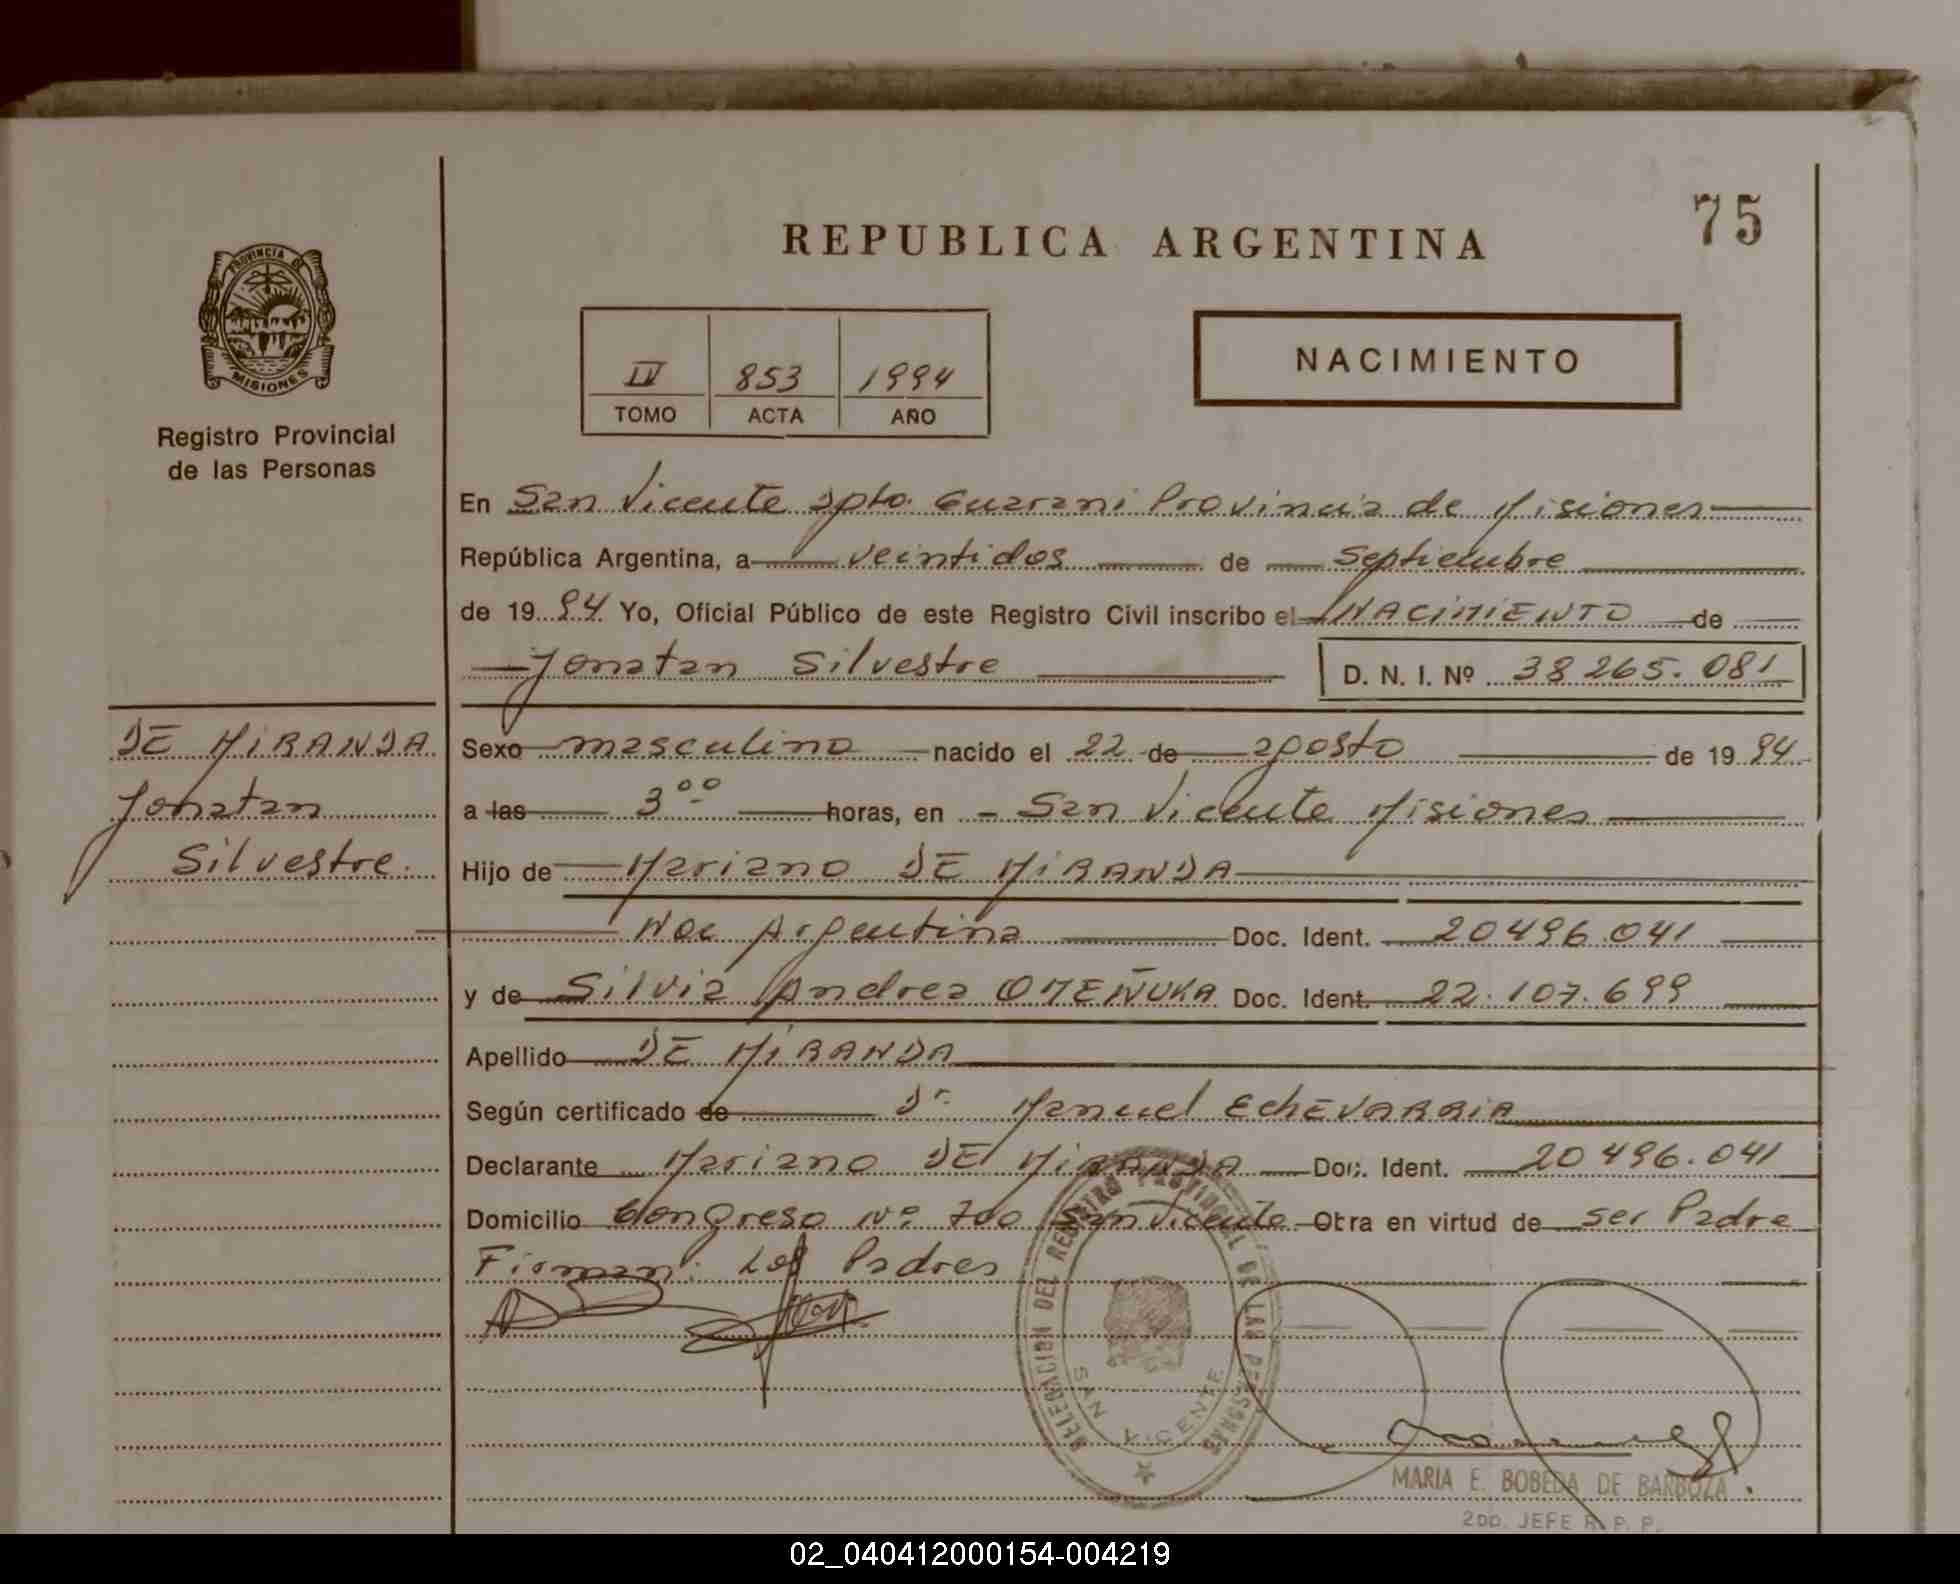 75
REPUBLICA ARGENTINA
PROVINCIA DE
MISIONES
Registro Provincial
de las Personas
IV 853 1994
TOMO ACTA AÑO
NACIMIENTO
En San Vicente Dpto. Guarani Provincia de Misiones
República Argentina, a veintidos de Septiembre
de 1994 Yo, Oficial Público de este Registro Civil inscribo el NACIMIENTO de
Jonatan Silvestre D. N. I. Nº 38265.081
DE MIRANDA
Jonatan
Silvestre.
Sexo masculino nacido el 22 de agosto de 1994
a las 3 oo horas, en - San Vicente Misiones
Hijo de Mariano DE MIRANDA
Nac Argentina Doc. Ident. 20496.041
y de Silvia Andrea OMEÑUKA Doc. Ident. 22.107.699
Apellido DE MIRANDA
Según certificado de Dr. Manuel EchEVARRiA
Declarante Mariano DE MIRANDA Doc. Ident. 20496.041
Domicilio Congreso Nº 700 San Vicente Obra en virtud de ser Padre
Firman: Los Padres
DELEGACION DEL REGISTRO PROVINCIAL DE LAS PERSONAS
SAN VICENTE
MARIA E. BOBEDA DE BARBOZA
2DO. JEFE R. P. P.
02_040412000154-004219